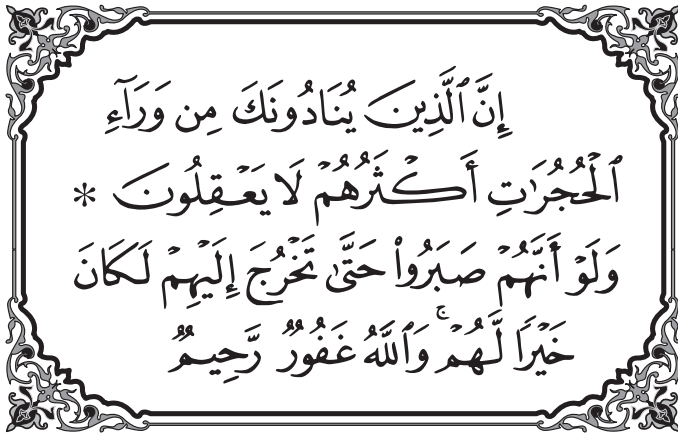 إِنَّ ٱلَّذِينَ يُنَادُونَكَ مِن وَرَآءِ
ٱلْحُجُرَٰتِ أَكْثَرُهُمْ لَا يَعْقِلُونَ *
وَلَوْ أَنَّهُمْ صَبَرُوا۟ حَتَّىٰ تَخْرُجَ إِلَيْهِمْ لَكَانَ
خَيْرًا لَّهُمْ ۚ وَٱللَّهُ غَفُورٌ رَّحِيمٌ